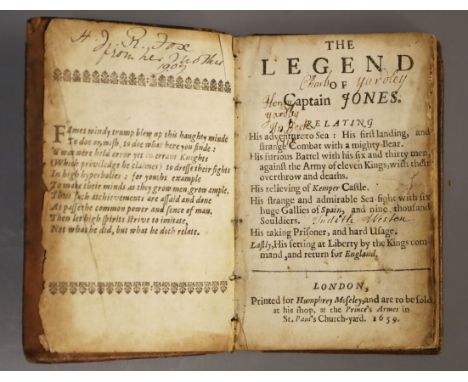 H. J. R. Fox
from her Mother
1907
FAmes windy trump blew up this haughty minde
To do, or wish, to doe what here you finde:
'Twas nere held error yet in errant Knights
(Which priviledge he claimes) to dresse their fights
In high hyperbolies: for youths example
To make their minds as they grow men, grow ample.
Thus such atcheivements are assaid and done
As passe the common power and sence of man.
Then let high spirits strive to imitate,
Not what he did, but what he doth relate.
THE
LEGEND
OF
Charles Yardley
Captain JONES.
Henry
Yardley
RELATING
His adventure to Sea: His first landing, and
strange Combat with a mighty Bear.
His furious Battel with his six and thirty men,
against the Army of eleven Kings, with their
overthrow and deaths.
His relieving of Kemper Castle.
His strange and admirable Sea-fight with six
huge Gallies of Spain, and nine thousand
Souldiers. Judith Weston
His taking Prisoner, and hard Usage.
Lastly, His setting at Liberty by the Kings com-
mand, and return for England.
LONDON,
Printed for Humphrey Moseley, and are to be sold
at his shop, at the Prince's Armes in
St. Paul's Church-yard. 1659.